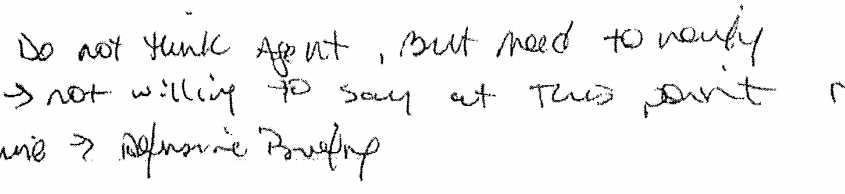 Do not think Agent, But need to verify
→ not willing to say at This point
→ Defensive Briefing